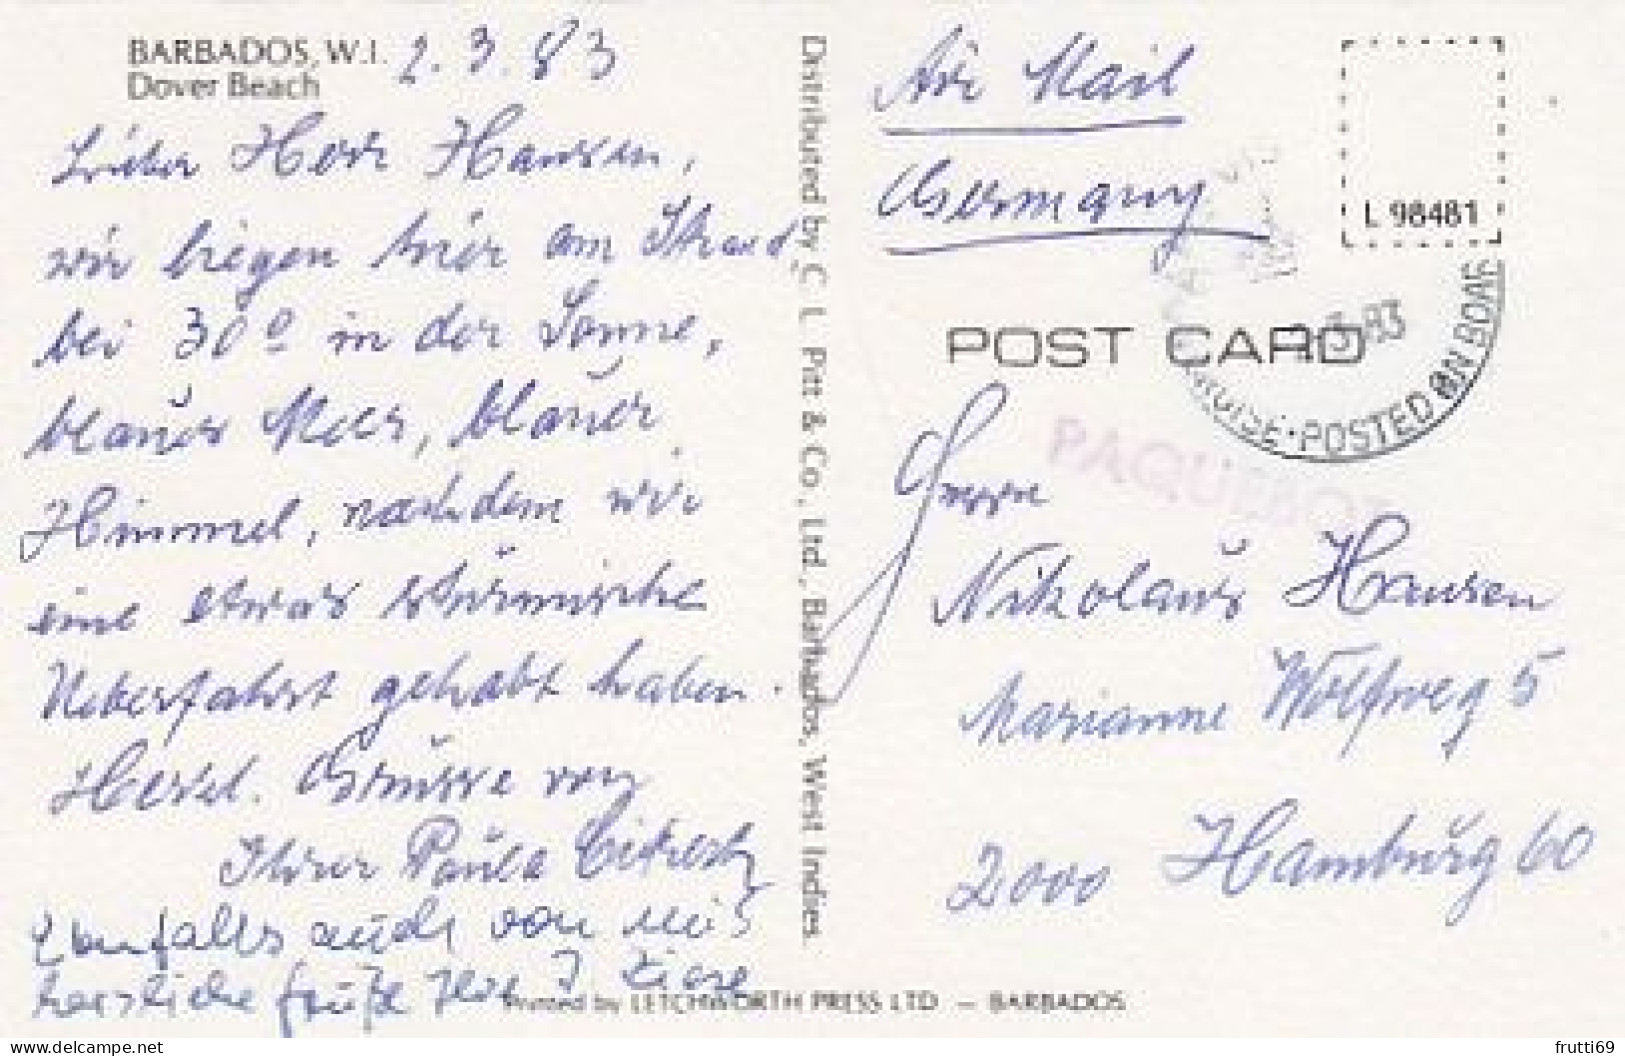 BARBADOS, W.I. 2.3.83
Dover Beach
Lieber Herr Hansen,
wir liegen hier am Strand,
bei 30° in der Sonne,
blaues Meer, blauer
Himmel, nachdem wir
eine etwas stürmische
Ueberfahrt gehabt haben.
Herzl. Grüsse von
Ihrer Paula
Ebenfalls auch von mir
herzliche Grüße Ihre
Distributed by C. L. Pitt & Co., Ltd., Barbados, West Indies.
Printed by LETCHWORTH PRESS LTD — BARBADOS
Air Mail
Germany
L 98481
POST CARD
3.83
CRUISE·POSTED ON BOAR
PAQUEBOT
Herrn
Nikolaus Hansen
Marianne Wolfweg 5
2000 Hamburg 60
delcampe.net
frutti69